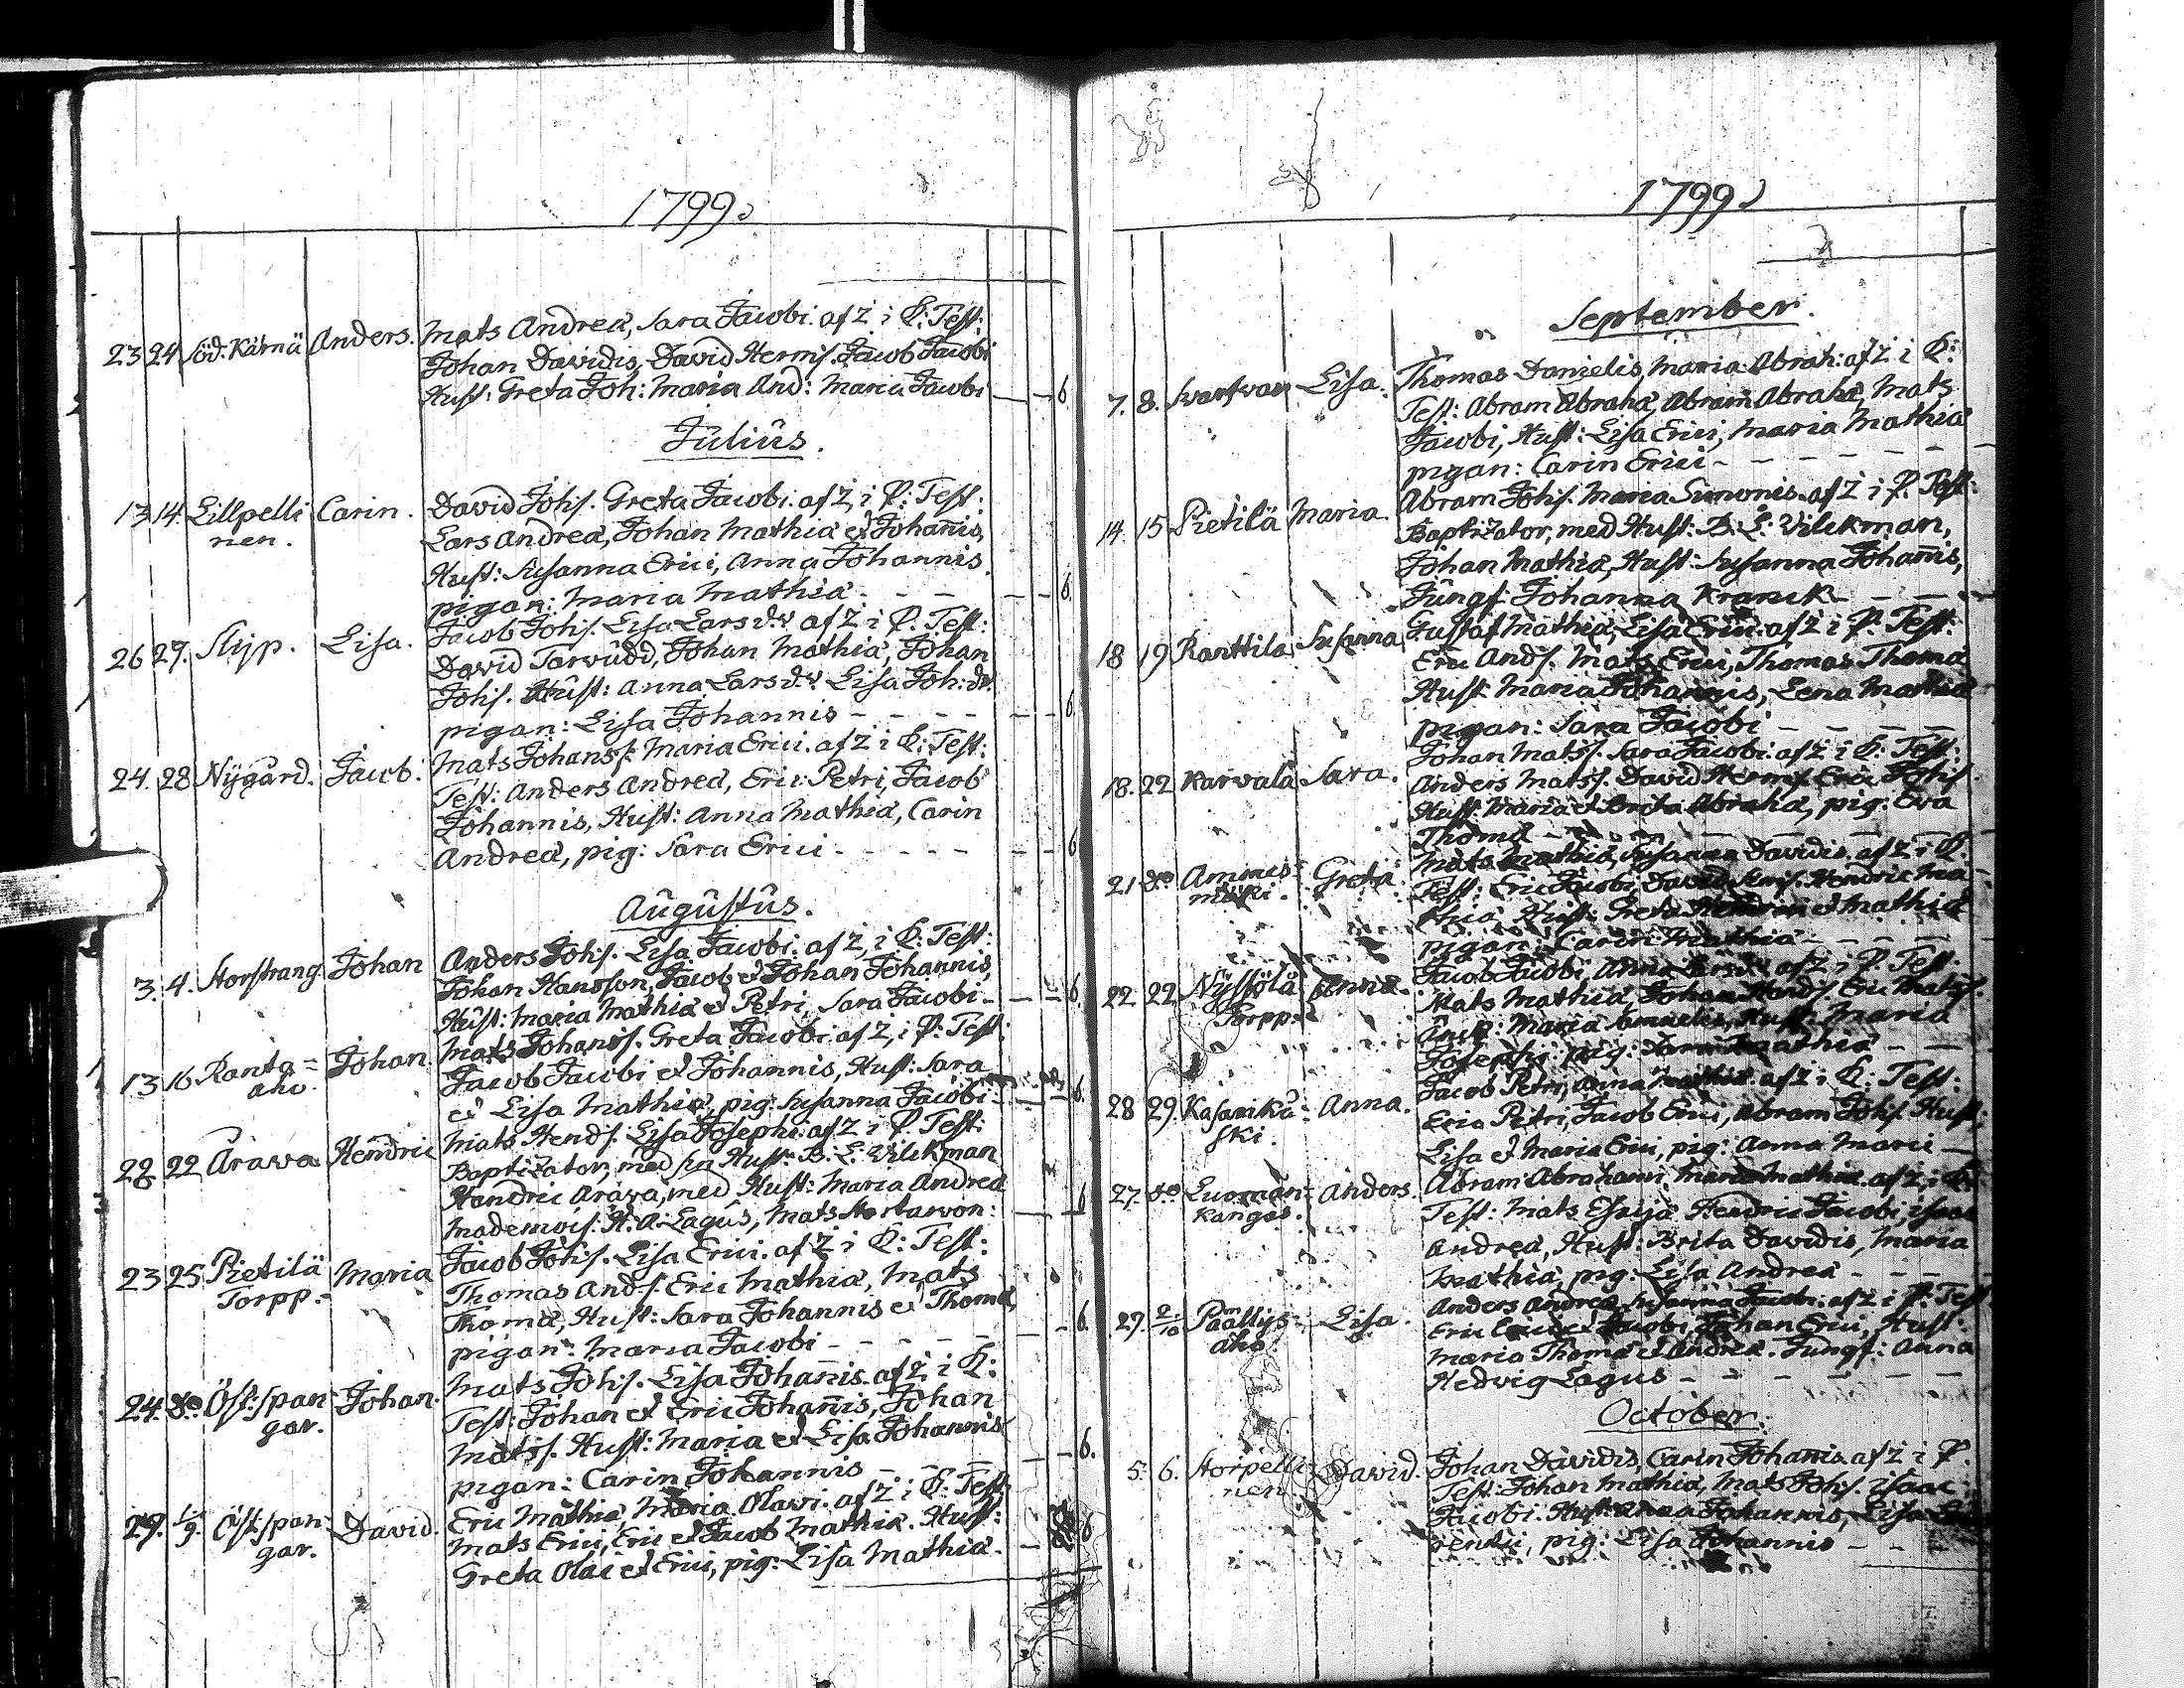 1799.
23 24 Söd: Kärnä Anders. Mats Andreä, Sara Jacobi. af 2 i Q: Test:
Johan Davidis, David Herms. Jacob Jacobi
Hust: Greta Joh: Maria And: Maria Jacobi — — 6
Julius.
13 14. Lillpelli Carin. David Johs. Greta Jacobi. af 2, i Q: Test:
nen. Lars Andreä, Johan Mathiä & Johannis,
Hust: Susanna Erici, Anna Johannis
pigan: Maria Mathiä - - - — — 6.
26 29. Slip. Lisa. Jacob Johs. Lisa Larsdr af 2 i Q. Test:
David Johan Mathiä, Johan
Johs. Hust: Anna Larsdr Lisa Joh: dr.
pigan: Lisa Johannis - - - — — 6
24. 28 Nygård. Jacob. Mats Johans s. Maria Erici. af 2 i Q: Test:
Test: Anders Andreä, Eric Petri, Jacob
Johannis, Hust: Anna Mathiä, Carin
Andreä, pig: Sara Erici - - - - — — 6
Augustus.
3. 4. Storstrang. Johan Anders Johs. Lisa Jacobi. af 2, i Q: Test:
Johan Hansson, Jacob & Johan Johannis,
Hust: Maria Mathiä & Petri, Sara Jacobi — — 6.
13 16 Ranta= Johan. Mats Johans s. Greta Jacobi. af 2, i Q: Test:
aho. Jacob Jacobi & Johannis, Hust: Sara
& Lisa Mathiä, pig: Susanna Jacobi — — 6.
22 Arawa Hendric Mats Hends. Lisa Josephi. af 2 i Q. Test:
Baptizator, med sin Hust: B. L. Vilckman
Hendric Arawa, med Hust: Maria Andreä
Mademois: H. A: Lagus, Mats — — 6
23 25 Pietilä Maria Jacob Johs. Lisa Erici. af 2 i Q: Test:
Torpp. Thomas Ands. Eric Mathiä, Mats
Thomä, Hust: Sara Johannis & Thomä,
pigan: Maria Jacobi - - - 6.
24. do Öst: span Johan. Mats Johs. Lisa Johannis. af 2 i Q:
gar. Test: Johan & Eric Johannis, Johan
Matss. Hust: Maria & Lisa Johannis
pigan: Carin Johannis - - - 6.
29. 1/9. Öst: span David. Eric Mathiä, Maria Olavi. af 2 i Q: Test:
gar. Mats Erici, Eric & Jacob Mathiä. Hust:
Greta Olai & Erici, pig: Lisa Mathiä. 6
1799
September.
7. 8. Lisa. Thomas Danielis, Maria Abrah: af 2 i Q:
Test: Abram Abrahä, Abram Abrahä, Mats
Jacobi, Hust: Lisa Erici, Maria Mathiä
pigan: Carin Erici - - - - - -
14. 15 Pietilä Maria. Abram Johs. Maria Simonis. af 2 i Q. Test:
Baptizator, med Hust: B. L: Vilckman,
Johan Mathiä, Hust: Susanna Johannis,
Jungf: Johanna Kranck - - -
18 19 Ranttila Susanna Gustaf Mathiä, Lisa Erici. af 2 i Q. Test:
Eric Ands. Mats Erici, Thomas Thomä
Hust: Maria Johannis, Lena Mathiä
pigan: Sara Jacobi - - - -
18. 22 Karvala Sara. Johan Matss. Sara Jacobi. af 2 i Q: Test:
Anders Matss. David Herms. Eric Johs.
Hust: Maria & Brita Abrahä, pig: Eva
Thomä - - -
21 do Ammes= Greta. Mats Mathiä, Susanna Davidis. af 2 i Q.
mäki. Test: Eric Jacobi, David Hendric Ma-
thiä, Hust: Greta & Mathiä
pigan: Carin Mathiä - - -
22. 22. Nyssölä Anna. Jacob Jacobi, Anna Larsdr af 2 i Q. Test:
Torpp. Mats Mathiä, Johan Hends. Eric Matss.
Maria Hust: Maria
Josephi, pig: Mathiä - -
28 29. Kasariku- Anna. Jacob Petri, Anna Mathiä af 2 i Q: Test:
ski. Eric Petri, Jacob Erici, Abram Johs. Hust:
Lisa & Maria Erici, pig: Anna Marci -
27. do Luoman= Anders. Abram Abrahami, Maria Mathiä. af 2 i Q:
kangas. Test: Mats Esaijä Hendric Jacobi, Isaac
Andreä, Hust: Brita Davidis, Maria
Mathiä, pig: Lisa Andreä - - -
29. 2/10 Päällys= Lisa. Anders Andreä, Susanna Jacobi. af 2 i Q: Test
aho. Eric & Jacobi, Johan Erici, Hust:
Maria Thomä & Andreä. Jungf: Anna
Hedvig Lagus - - - - - -
October.
5. 6. Storpelli David. Johan Davidis, Carin Johannis. af 2 i Q.
nen. Test: Johan Mathiä, Mats Johs. Isaac
Jacobi. Hust: Anna Johannis, Lisa
pig: Lisa Johannis - - -